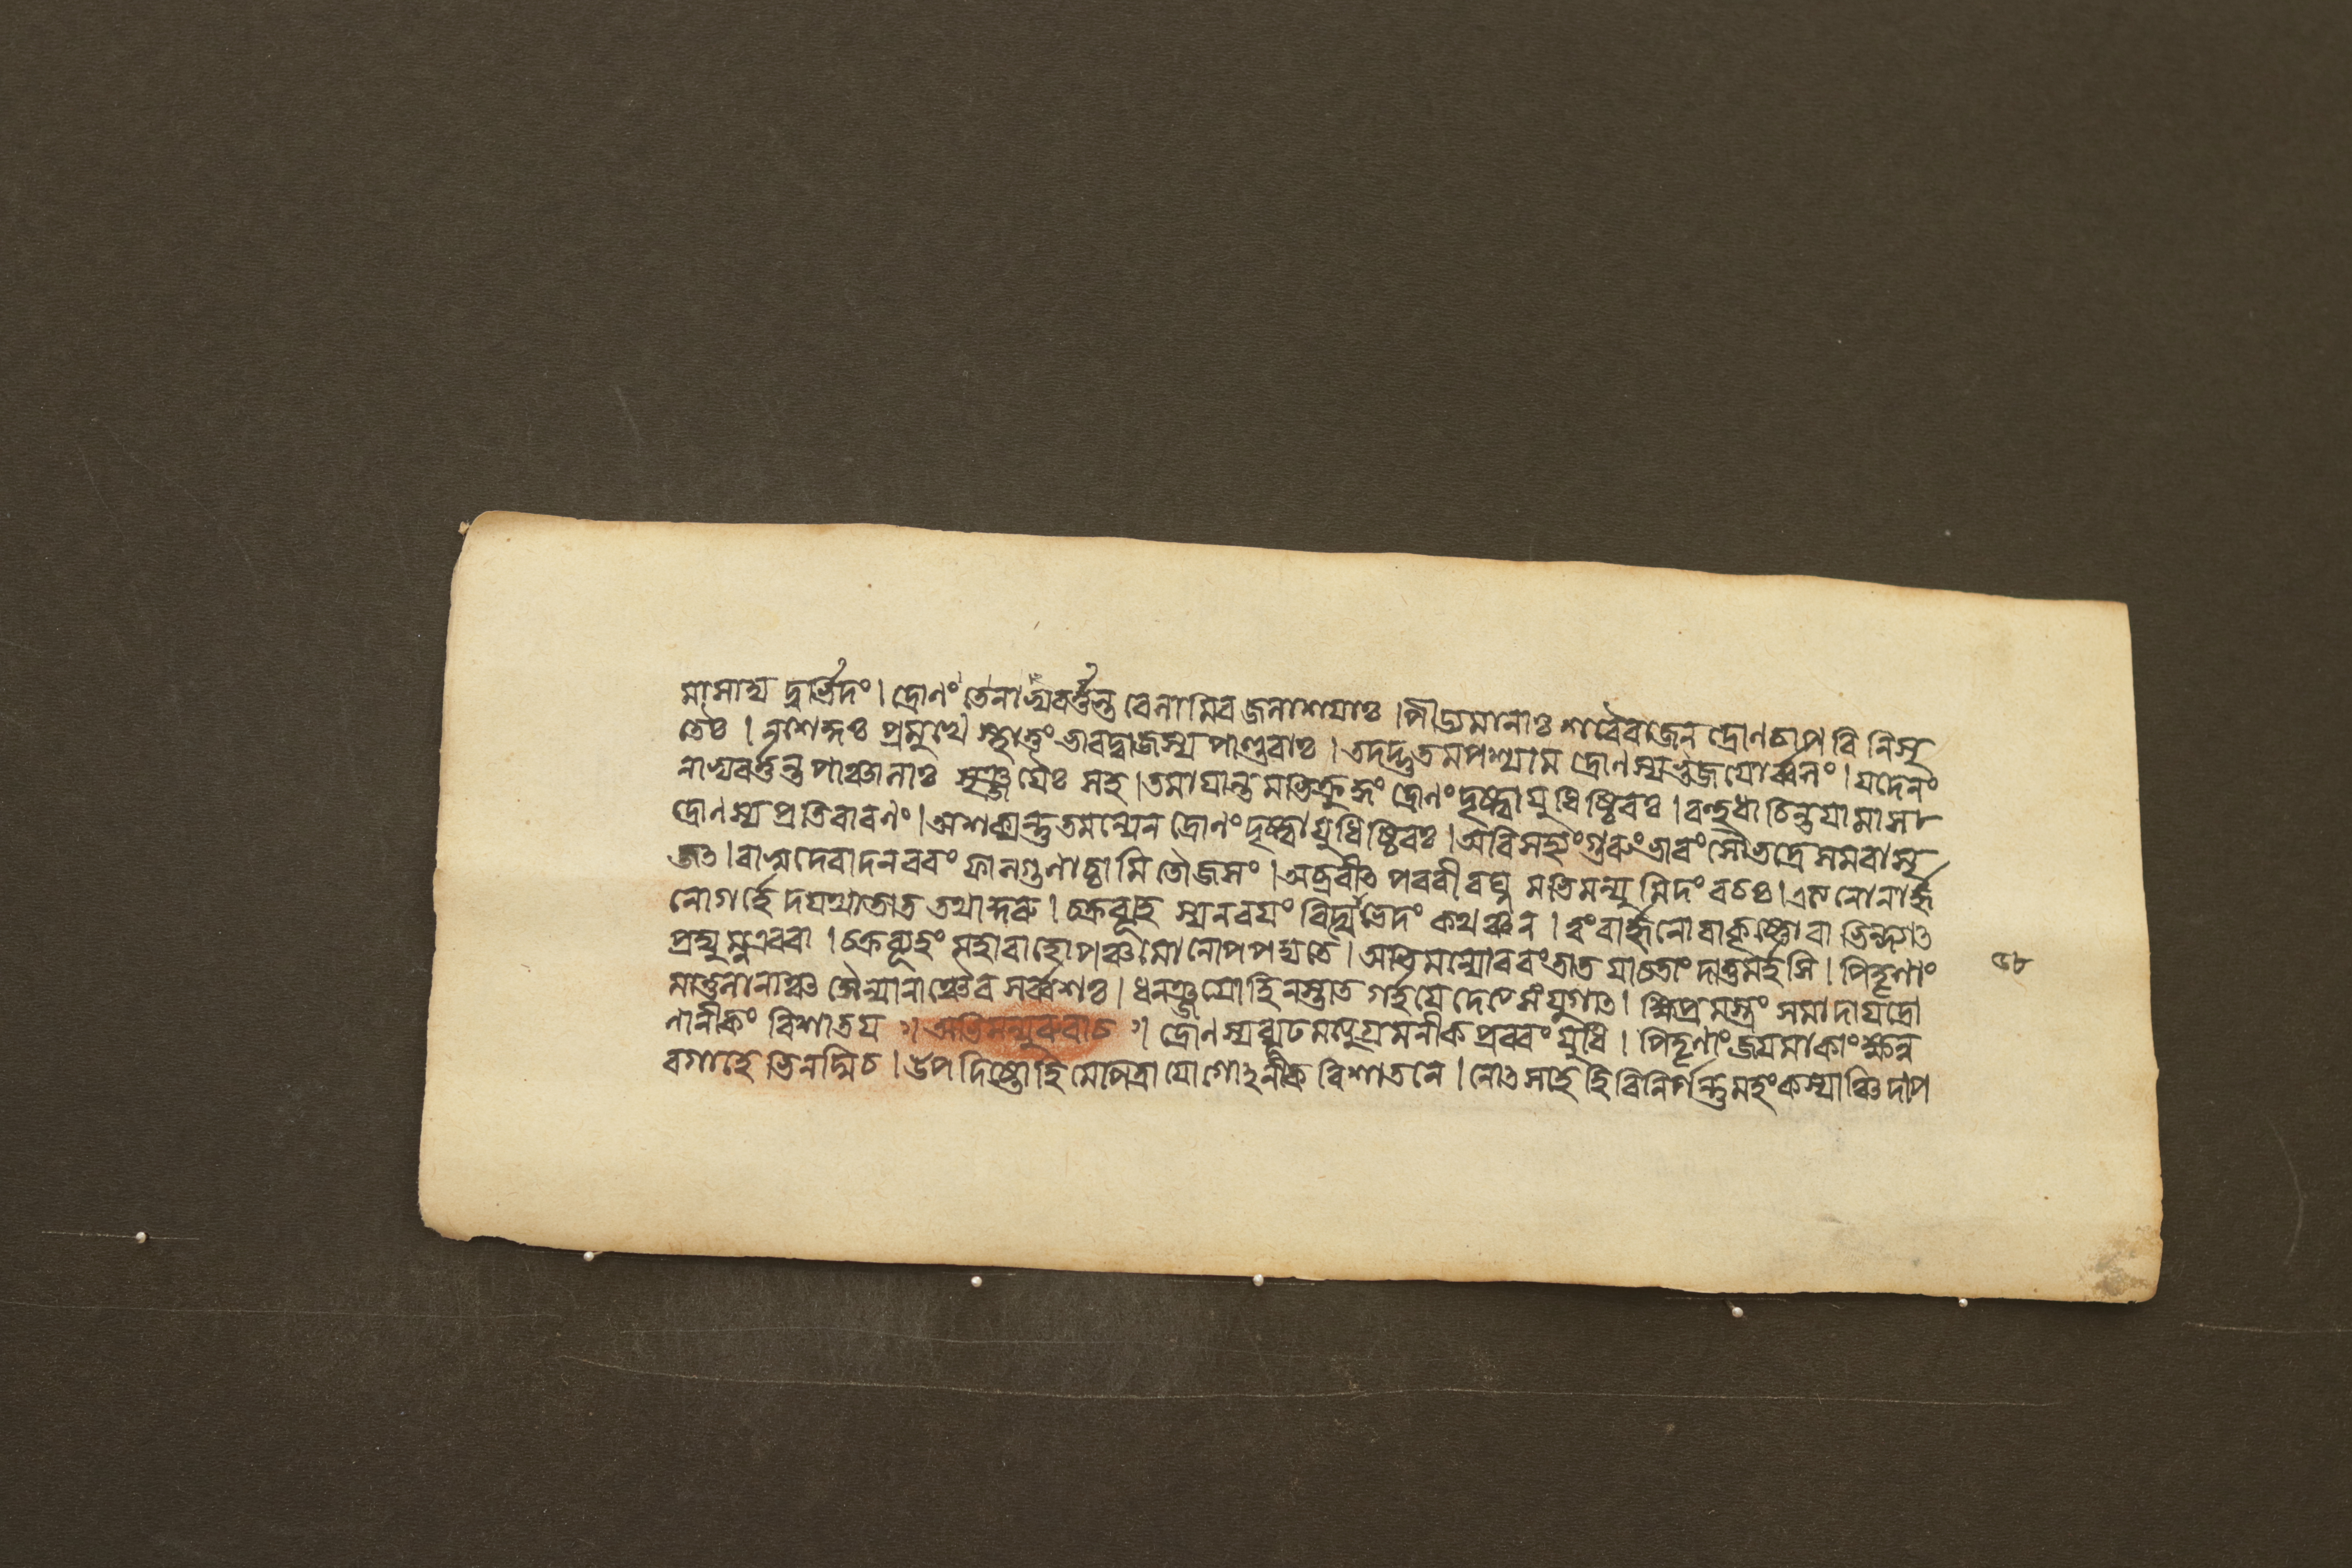 মাসাদ্য দুর্ভিদং । দ্রোণং তে নাভ্যবর্ত্তন্ত বেলামিব জলাশয়াঃ । পীড্যমানাঃ শরৈরাজেন দ্রোণচাপবিনিসৃ
তৈঃ । ন শেকুঃ প্রমুখে স্থাতুং ভারদ্বাজস্য পাণ্ডবাঃ । তদদ্ভুতমপশ্যাম দ্রোণস্য ভুজয়োর্ব্বলং । যদেনং
নাভ্যবর্ত্তন্ত পাঞ্চালাঃ সৃঞ্জয়ৈঃ সহ । তমায়ান্তমভিক্রুদ্ধং দ্রোণং দৃষ্ট্বা যুধিষ্ঠিরঃ । বহুধা চিন্তয়ামাস
দ্রোণস্য প্রতিবারণং । অশক্যন্তু তমন্যেন দ্রোণং দৃষ্ট্বা যুধিষ্ঠিরঃ । অবিসহ্যং গুরুং ভারং সৌভদ্রে সমবাসৃ
জৎ । বাসুদেবাদনবরং ফালগুণাচ্চামিতৌজসং । অব্রবীৎ পরবীরঘ্নমভিমন্যুমিদং বচঃ । এত্য নো নার্জ্জু
নো গর্হেদযথা তাত তথা কুরু । চক্রব্যূহস্য ন বয়ং বিদ্মো ভেদং কথঞ্চন । ত্বং বার্জ্জুনো বা কৃষ্ণো বা ভিন্দ্যাৎ
প্রদ্যুম্ন এব বা । চক্রব্যূহং মহাবাহো পঞ্চমো নোপপদ্যতে । অভিমন্যো বরং তাত যাচতাং দাতুমর্হসি । পিতৃণাং
মাতুলানাঞ্চ সৈন্যানাঞ্চৈব সর্ব্বশঃ । ধনঞ্জয়ো হি নস্তাত গর্হয়েদেত্য সংযুগাৎ । ক্ষিপ্রমস্ত্রং সমাদায় দ্রো
ণানীকং বিশাতয় ঃ। অভিমন্যুরুবাচ ঃ। দ্রোণস্য ব্যূঢমত্যুগ্রমনীকপ্রবরং যুধি । পিতৃণাং জয়মাকাংক্ষন্ন
বগাহে ভিনদ্মি চ । উপদিষ্টো হি মে পিত্রা যোগোঽনীকবিশাতনে । নোৎসহে হি বিনির্গন্তুমহং কস্যাঞ্চিদাপ